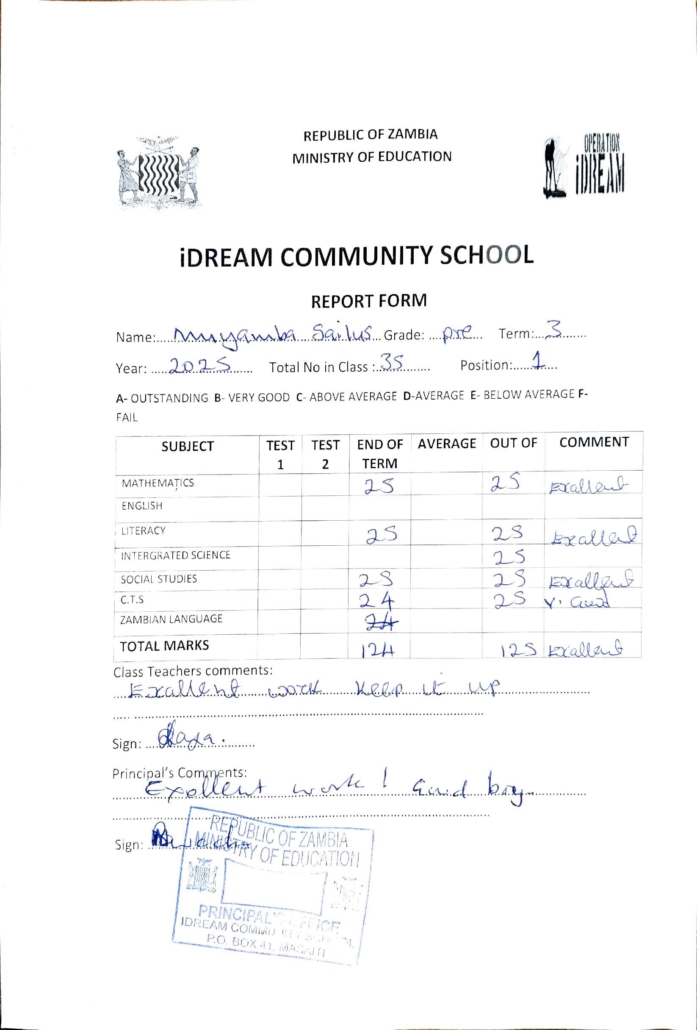 REPUBLIC OF ZAMBIA
MINISTRY OF EDUCATION
OPERATION
iDREAM
iDREAM COMMUNITY SCHOOL
REPORT FORM
Name: Muyamba Sailus Grade: pre Term: 3
Year: 2025 Total No in Class: 35 Position: 1
A- OUTSTANDING B- VERY GOOD C- ABOVE AVERAGE D-AVERAGE E- BELOW AVERAGE F-
FAIL
SUBJECT TEST 1 TEST 2 END OF TERM AVERAGE OUT OF COMMENT
MATHEMATICS 25 25 Exallent
ENGLISH
LITERACY 25 25 Exallent
INTERGRATED SCIENCE 25
SOCIAL STUDIES 25 25 Exallent
C.T.S 24 25 V. Good
ZAMBIAN LANGUAGE 24
TOTAL MARKS 124 125 Exallent
Class Teachers comments:
Exallent work keep it up
Sign:
Principal's Comments:
Exollent work! Good boy
Sign:
REPUBLIC OF ZAMBIA
MINISTRY OF EDUCATION
PRINCIPAL'S OFFICE
IDREAM COMMUNITY SCHOOL
P.O. BOX 41, MASAITI